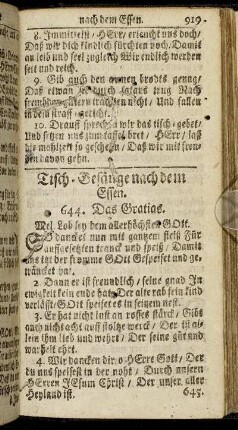 nach dem Essen. 919.
8. Immittelst / HErr, erleucht uns doch/
Daß wir dich kindlich fürchten doch, Damit
an leib und seel zugleich Wir endlich werden
seit und reich.
9. Gib auch den armen brodts genug/
Daß etwan
Nach
frembden
nicht / Und fallen
in dein straff-gericht.
10. Drauff sprechen wir das tisch-gebet/
Und setzen uns umb taffel bret / HErr / laß
die mahlzeit so geschehn, Daß wir mit freu-
den davon gehn.
Tisch-Gesänge nach dem
Essen.
644. Das Gratias.
Mel. Lob sey dem allerhöchsten GOtt.
SO dancket nun mit gantzem fleiß Für
auffgesetzten tranck und speiß / Damit
uns itzt der fromme GOtt Gespeiset und ge-
träncket hat.
2. Dann er ist freundlich / seine gnad In
ewigkeit kein ende hat, Der alte rab sein kind
verläßt, GOtt speiset es in seinem nest.
3. Er hat nicht lust an rosses stärck / Gibt
auch nicht acht auff stoltze werck / Der ist al-
lein ihm lieb und wehrt / Der seine güt und
warheit ehrt.
4. Wir dancken dir, o HErre Gott / Der
du uns speisest in der noht / Durch unsern
HErren JEsum Christ / Der unser aller
Heyland ist. 645.